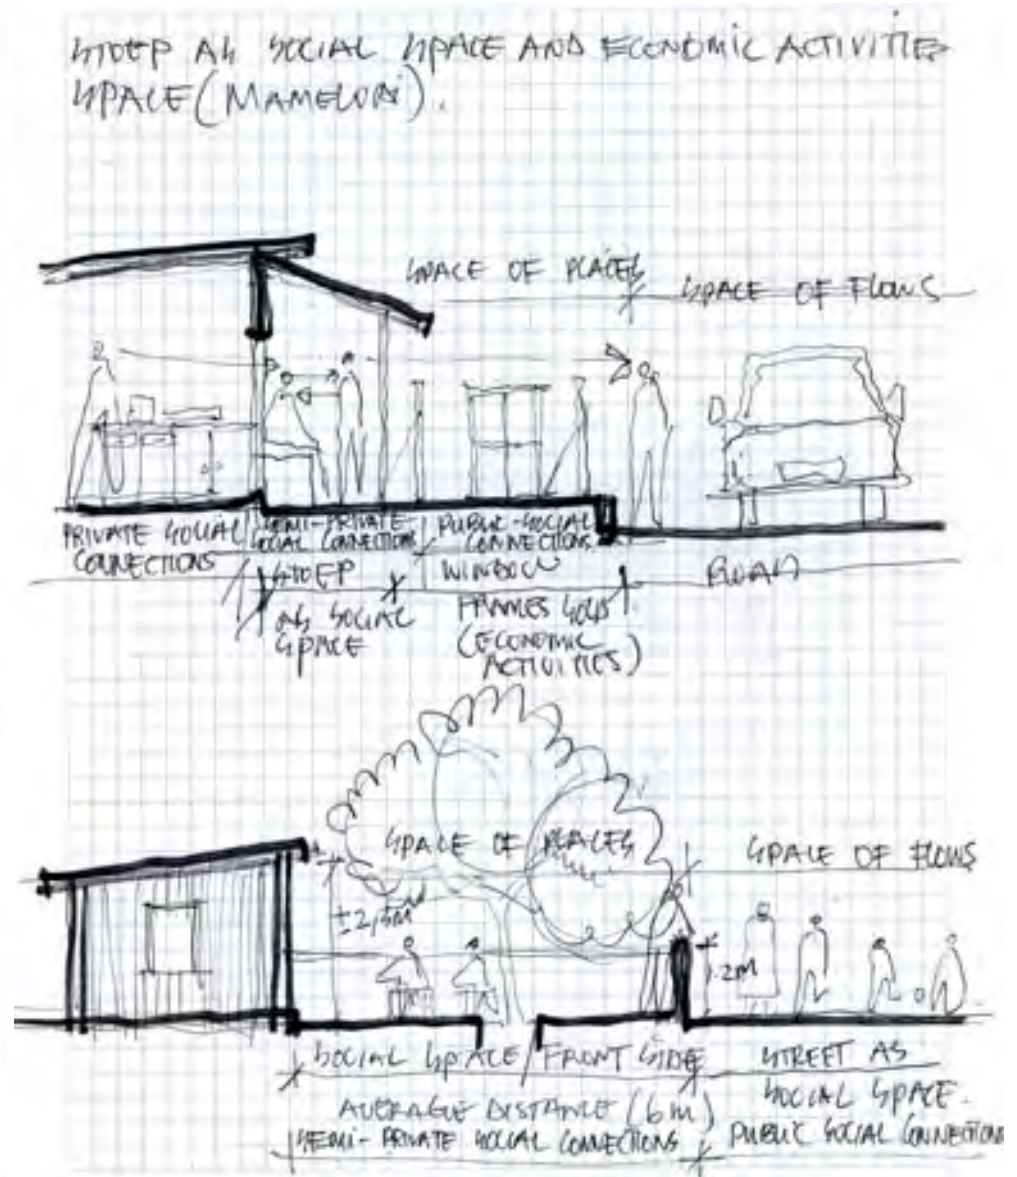 STOEP AS SOCIAL SPACE AND ECONOMIC ACTIVITIES
SPACE (MAMELODI).
SPACE OF PLACES
SPACE OF FLOWS
PRIVATE SOCIAL
CONNECTIONS
SEMI-PRIVATE-
SOCIAL CONNECTIONS
PUBLIC-SOCIAL
CONNECTIONS
STOEP
AS SOCIAL
SPACE
WINDOW
FRAMES SOLD
(ECONOMIC
ACTIVITIES)
ROAD
SPACE OF PLACES
SPACE OF FLOWS
±2,5M
1.2M
SOCIAL SPACE/FRONT SIDE
AVERAGE DISTANCE (6m)
SEMI-PRIVATE SOCIAL CONNECTIONS
STREET AS
SOCIAL SPACE.
PUBLIC SOCIAL CONNECTIONS